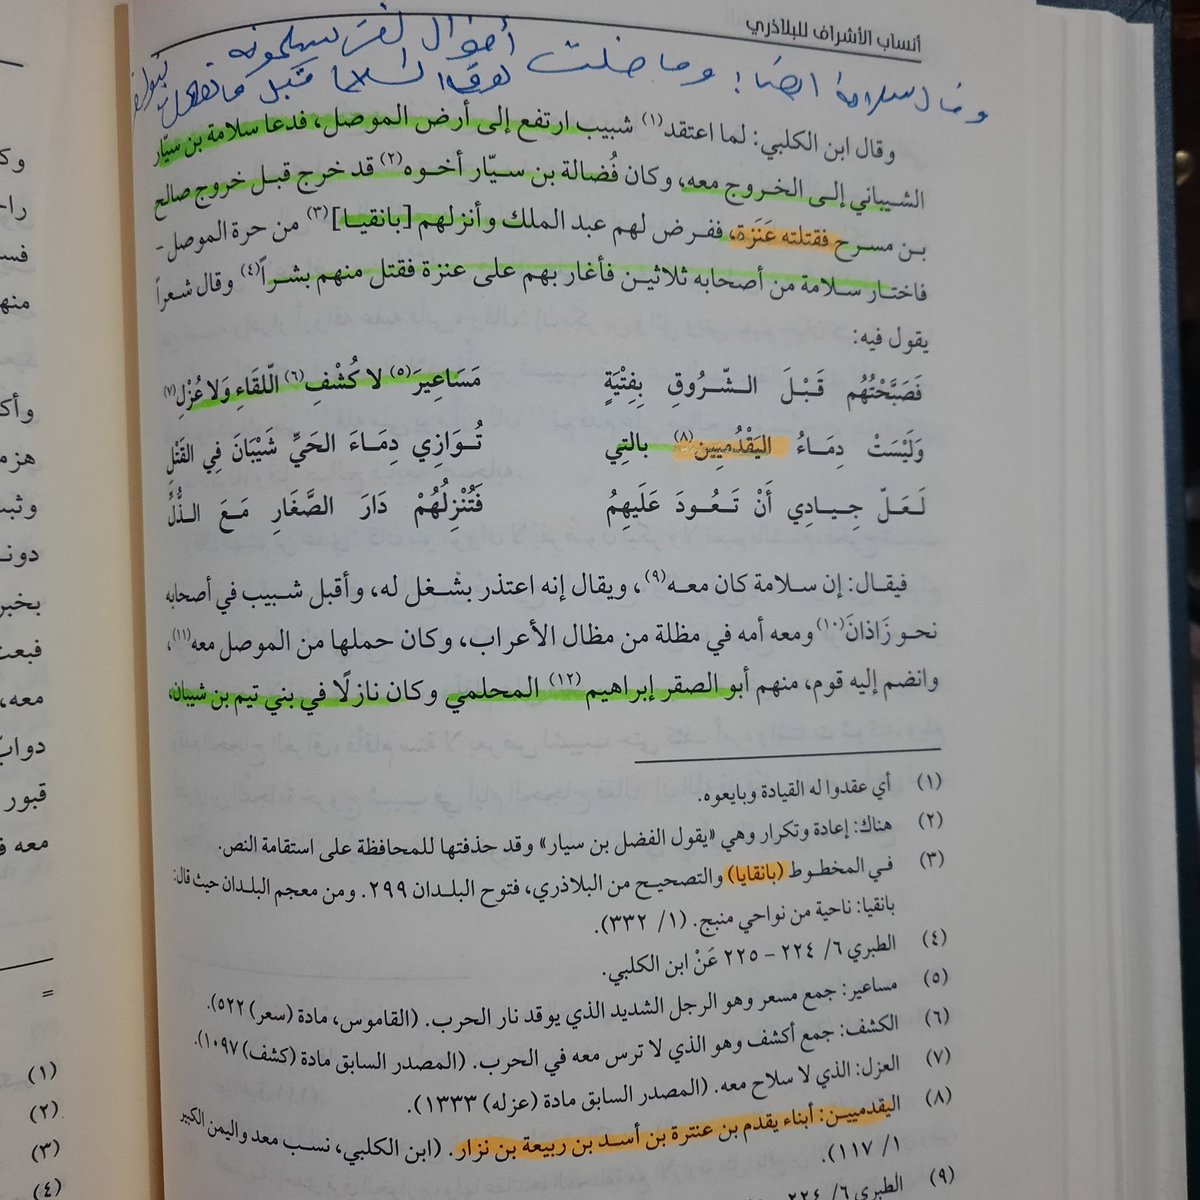 أنساب الأشراف للبلاذري
وقال سلامة ايضا : وما خلت أخوال الفتى يسلمونه
لوقع السلاح قبل ما فعلت
وقال ابن الكلبي: لما اعتقد(١) شبيب ارتفع إلى أرض الموصل، فدعا سلامة بن سيّار
الشيباني إلى الخروج معه، وكان فُضالة بن سيّار أخوه(٢) قد خرج قبل خروج صالح
بن مسرح فقتلته عَنَزَة، ففرض لهم عبد الملك وأنزلهم [بانقيا](٣) من حرة الموصل-
فاختار سلامة من أصحابه ثلاثين فأغار بهم على عنزة فقتل منهم بشراً(٤) وقال شعراً
يقول فيه:
فَصَبَّحْتُهُم قَبْلَ الشّرُوقِ بِفِتْيَةٍ مَسَاعِيرَ(٥) لا كُشْفِ(٦) الّلقَاءِ وَلا عُزْلِ(٧)
وَلَيْسَتْ دِمَاءُ اليَقْدُمِيِين(٨) بالتِي تُوَازِي دِمَاءَ الحَيِّ شَيْبَانَ فِي القَتْلِ
لَعَلّ جِيادِي أَنْ تَعُودَ عَلَيهِمُ فَتُنْزِلُهُمْ دَارَ الصَّغَارِ مَعَ الذُّلِّ
فيقال: إن سلامة كان معه(٩)، ويقال إنه اعتذر بشغل له، وأقبل شبيب في أصحابه
نحو زَاذانَ(١٠) ومعه أمه في مظلة من مظال الأعراب، وكان حملها من الموصل معه(١١)،
وانضم إليه قوم، منهم أبو الصقر إبراهيم(١٢) المحلمي وكان نازلًا في بني تيم بن شيبان،
(١) أي عقدوا له القيادة وبايعوه.
(٢) هناك: إعادة وتكرار وهي «يقول الفضل بن سيار» وقد حذفتها للمحافظة على استقامة النص.
(٣) في المخطوط (بانقايا) والتصحيح من البلاذري، فتوح البلدان ٢٩٩. ومن معجم البلدان حيث قال:
بانقيا: ناحية من نواحي منبج. (١/ ٣٣٢).
(٤) الطبري ٦/ ٢٢٤ - ٢٢٥ عَنْ ابن الكلبي.
(٥) مساعير: جمع مسعر وهو الرجل الشديد الذي يوقد نار الحرب. (القاموس، مادة (سعر) ٥٢٢).
(٦) الكشف: جمع أكشف وهو الذي لا ترس معه في الحرب. (المصدر السابق مادة (كشف) ١٠٩٧).
(٧) العزل: الذي لا سلاح معه. (المصدر السابق مادة (عزله) ١٣٣٣).
(٨) اليقدميين: أبناء يقدم بن عنترة بن أسد بن ربيعة بن نزار. (ابن الكلبي، نسب معد واليمن الكبير
١/ ١١٧).
(٩) الطبري ٦/ ٢٢٤
وأك
هزم
وثب
دون
بخبر
فبعث
معه،
دوابّ
قبور
معه ف
=
(١)
(٢)
(٣)
(٤)